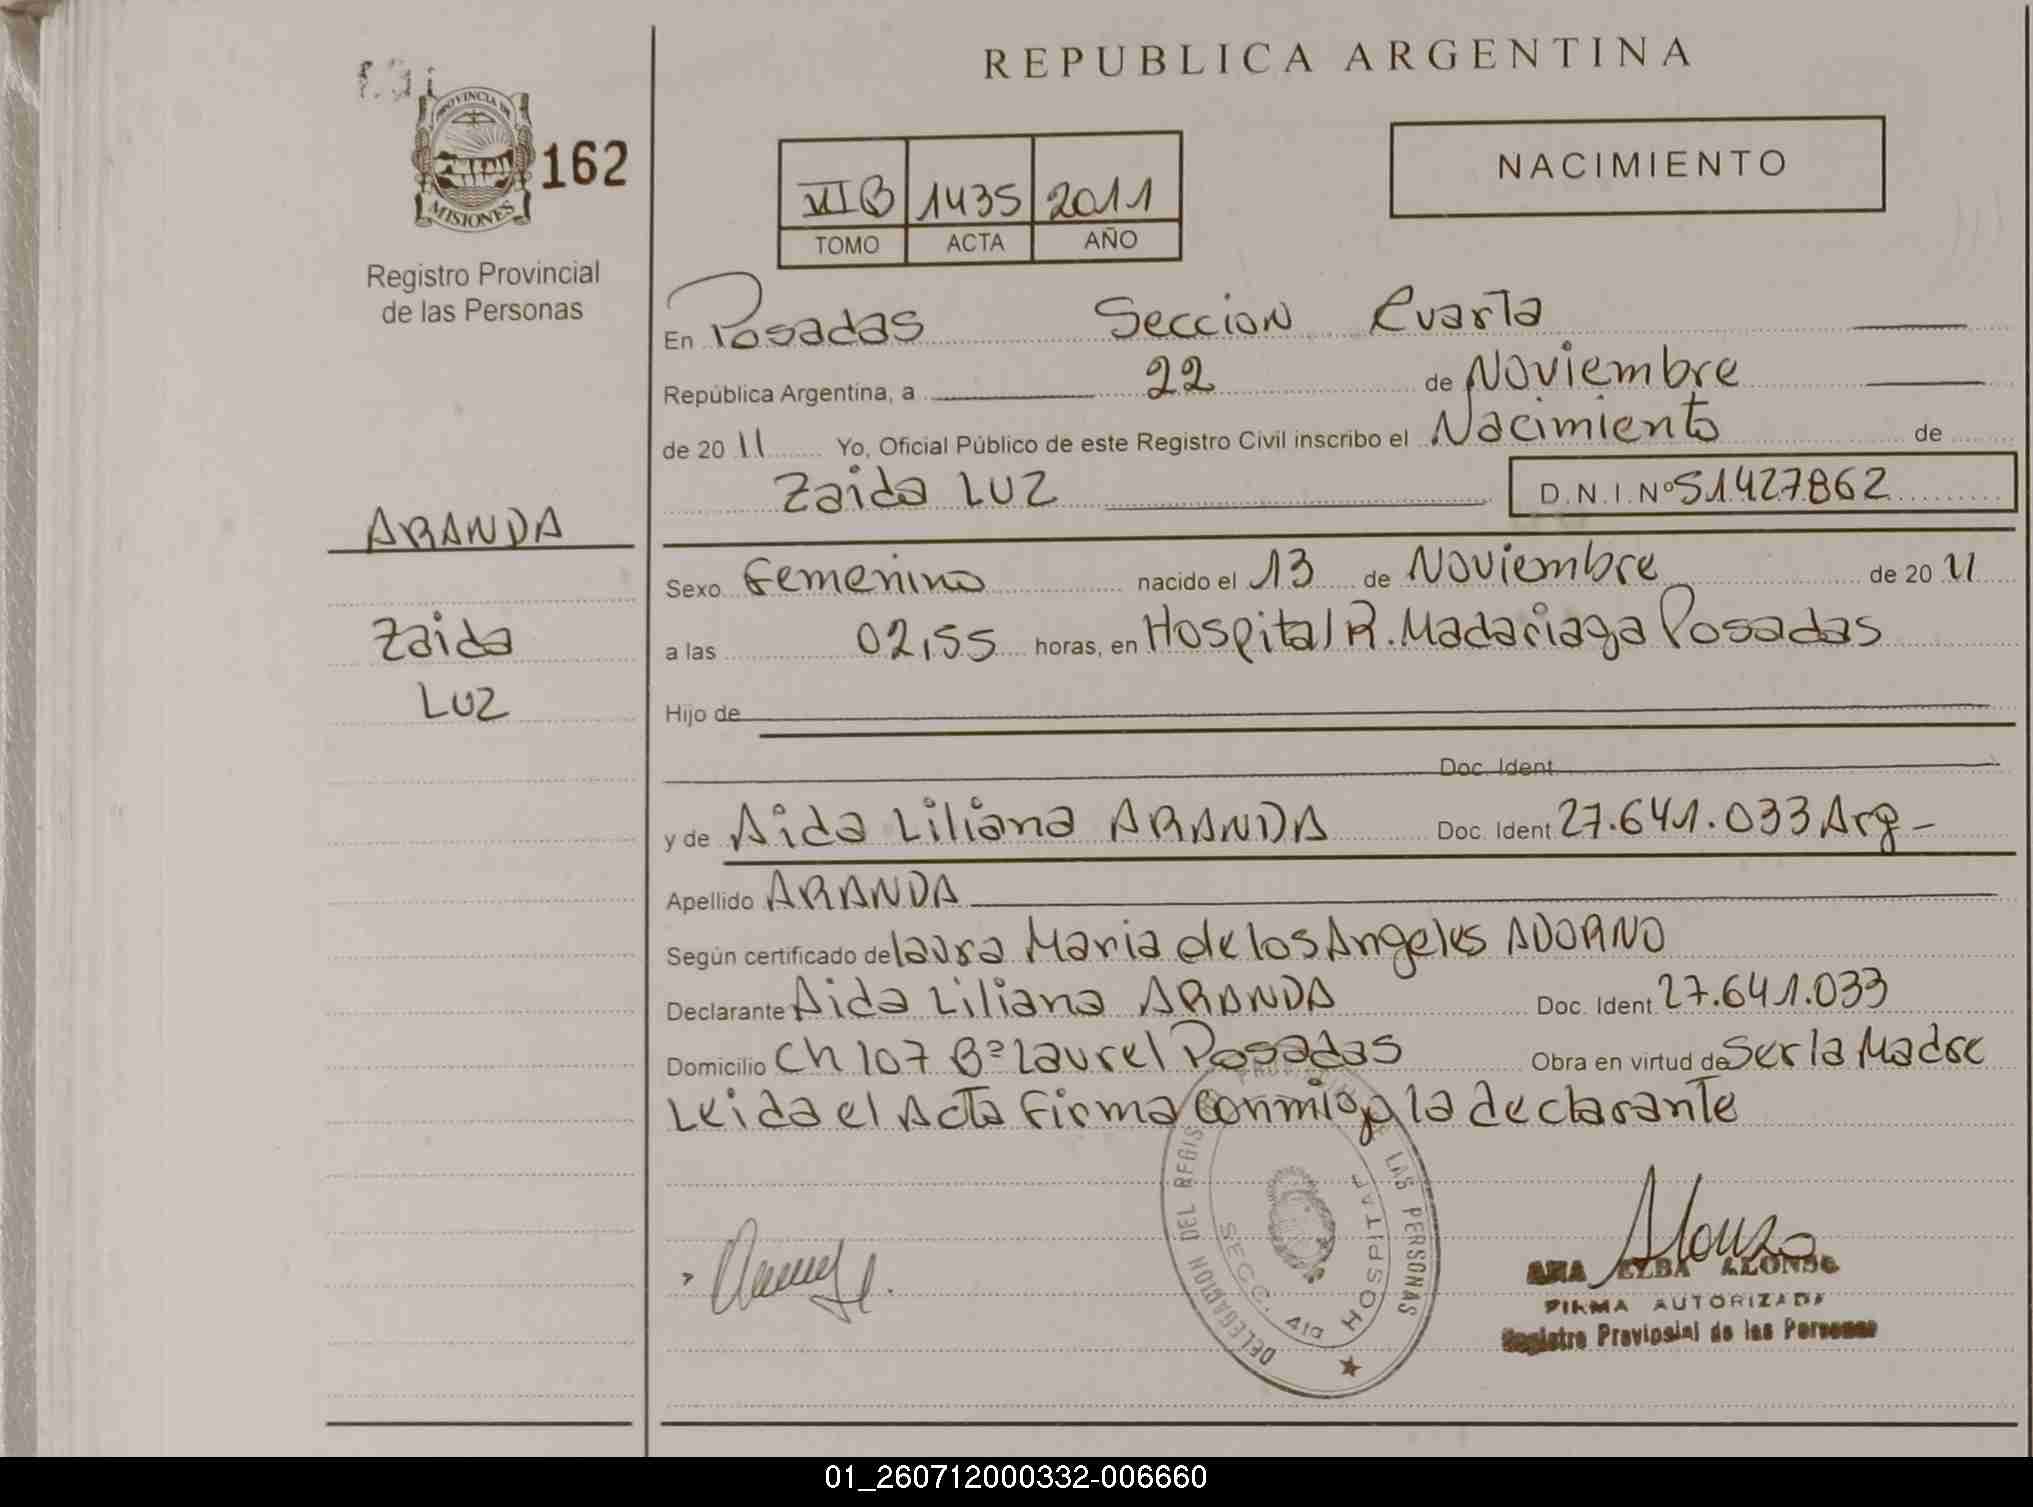 REPUBLICA ARGENTINA
PROVINCIA DE
MISIONES
162
Registro Provincial
de las Personas
VII B 1435 2011
TOMO ACTA AÑO
NACIMIENTO
En Posadas Seccion Cuarta
República Argentina, a 22 de Noviembre
de 20 11 Yo, Oficial Público de este Registro Civil inscribo el Nacimiento de
Zaida Luz D.N.I.Nº 51427862
ARANDA
Zaida
Luz
Sexo Femenino nacido el 13 de Noviembre de 20 11
a las 02,55 horas, en Hospital R. Madariaga Posadas
Hijo de
Doc. Ident
y de Aida Liliana ARANDA Doc. Ident 27.641.033 Arg -
Apellido ARANDA
Según certificado de Laura Maria de los Angeles ADORNO
Declarante Aida Liliana ARANDA Doc. Ident. 27.641.033
Domicilio Ch 107 Bº Laurel Posadas Obra en virtud de Ser la Madre
Leida el Acta Firma conmigo la declarante
DELEGACION DEL REGIS LAS PERSONAS
SECC. 4ta HOSPITAL
Alonso
ANA ELBA ALONSO
FIRMA AUTORIZADA
Registro Provincial de las Personas
01_260712000332-006660